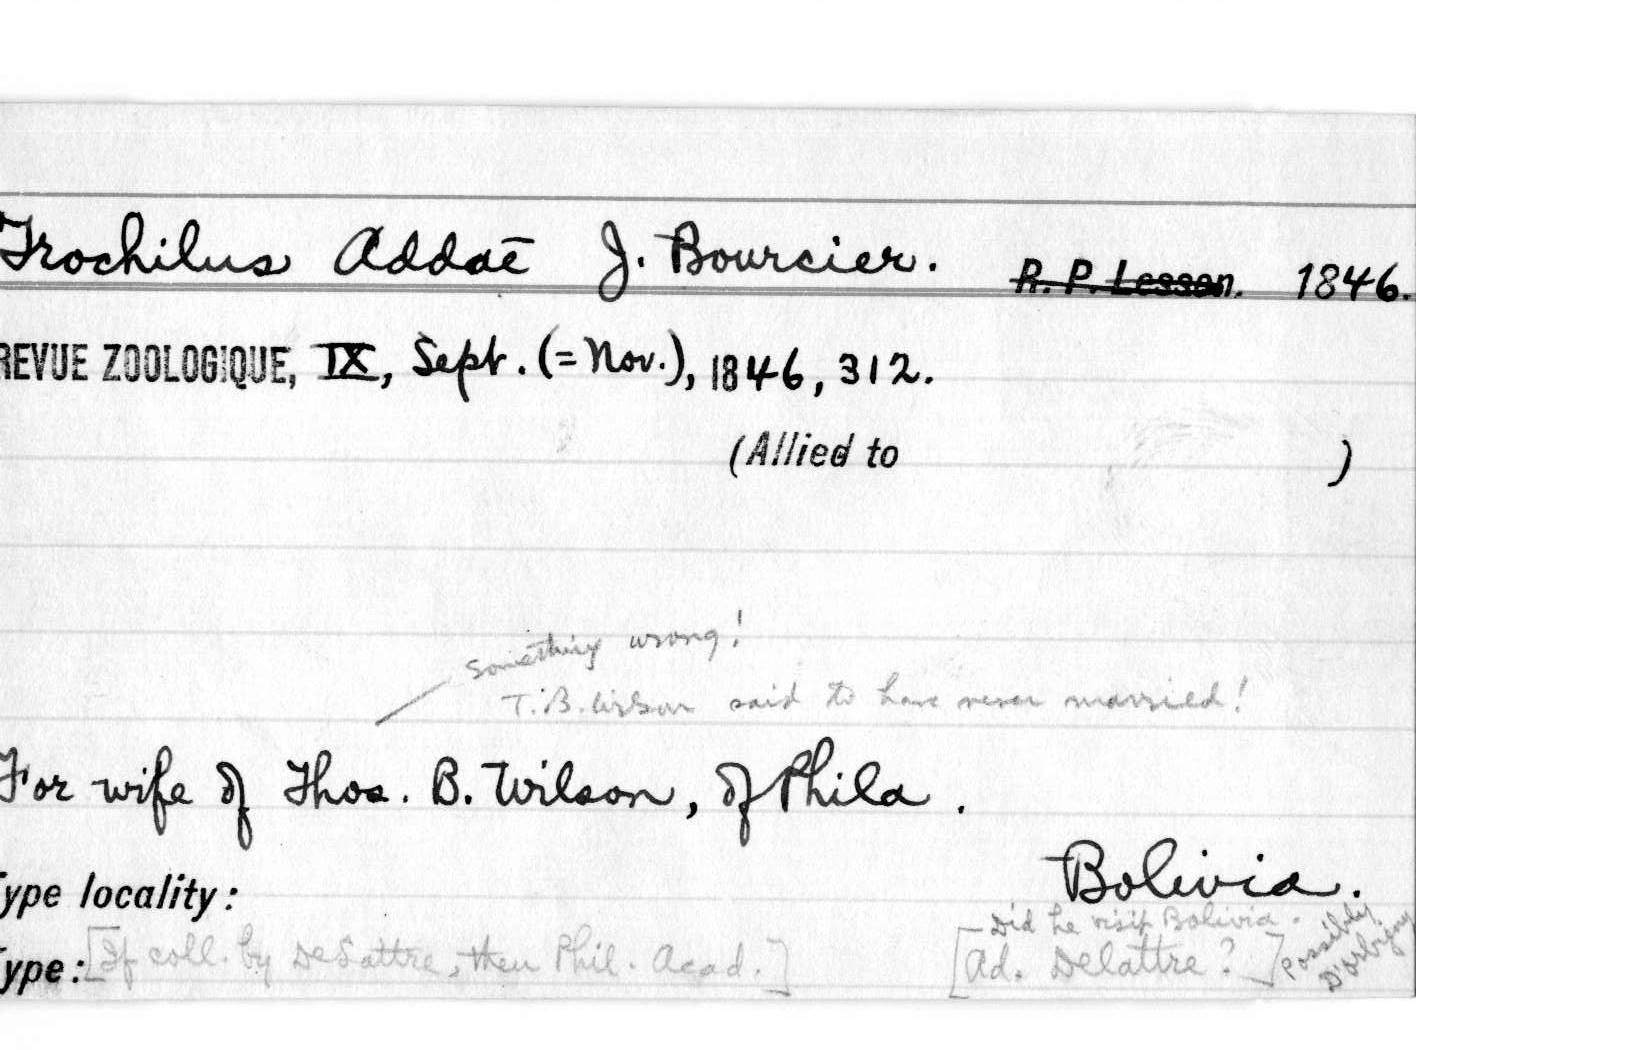 Trochilus Addaē J. Bourcier. R. P. Lesson. 1846.
REVUE ZOOLOGIQUE, IX, Sept. (=Nov.), 1846, 312.
(Allied to )
something wrong!
T.B. Wilson said to have never married!
For wife of Thos. B. Wilson, of Phila.
Bolivia.
Type locality:
Did he visit Bolivia.
Type: [If coll. by DeLattre, then Phil. Acad.] [Ad. Delattre?] Possibly
D'orbigny